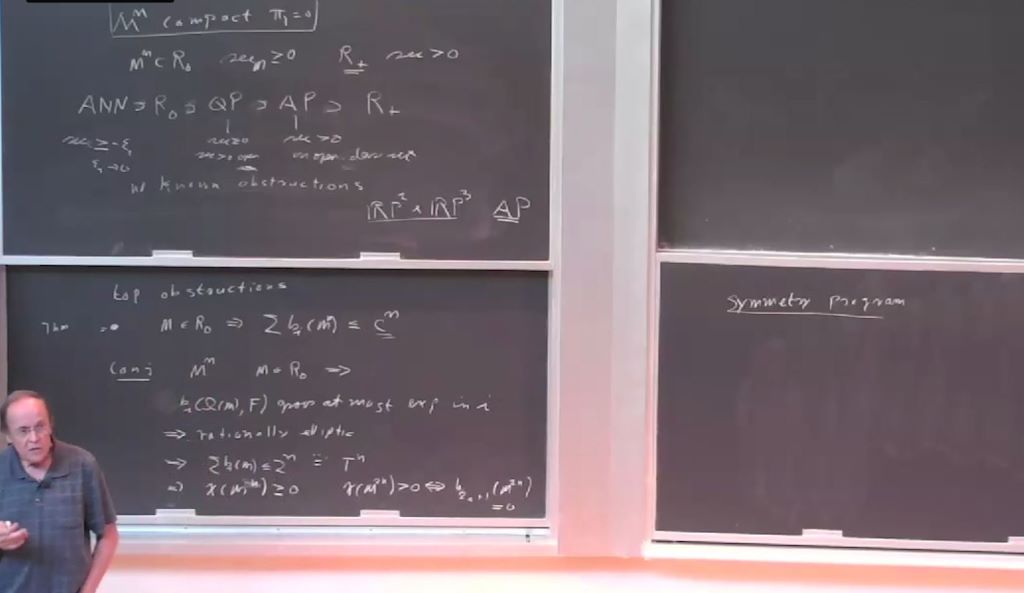 Mⁿ compact π₁=0
Mⁿ ⊂ R₀ sec ≥ 0 R₊ sec > 0
ANN ⊃ R₀ ⊃ QP ⊃ AP ⊃ R₊
sec ≥ -ε sec ≥ 0 sec > 0
ε → 0 sec > 0 open on open dense set
known obstructions
RP² × RP³ AP
top obstructions
Thm M ∈ R₀ ⇒ Σ bᵢ(M) ≤ Cⁿ
Conj Mⁿ M ∈ R₀ ⇒
bᵢ(Ω(M), F) grows at most exp in i
⇒ rationally elliptic
⇒ Σ bᵢ(M) ≤ 2ⁿ Tⁿ
⇒ χ(M²ⁿ) ≥ 0 χ(M²ⁿ) > 0 ⇔ b₂ₖ₊₁(M²ⁿ)
= 0
Symmetry Program